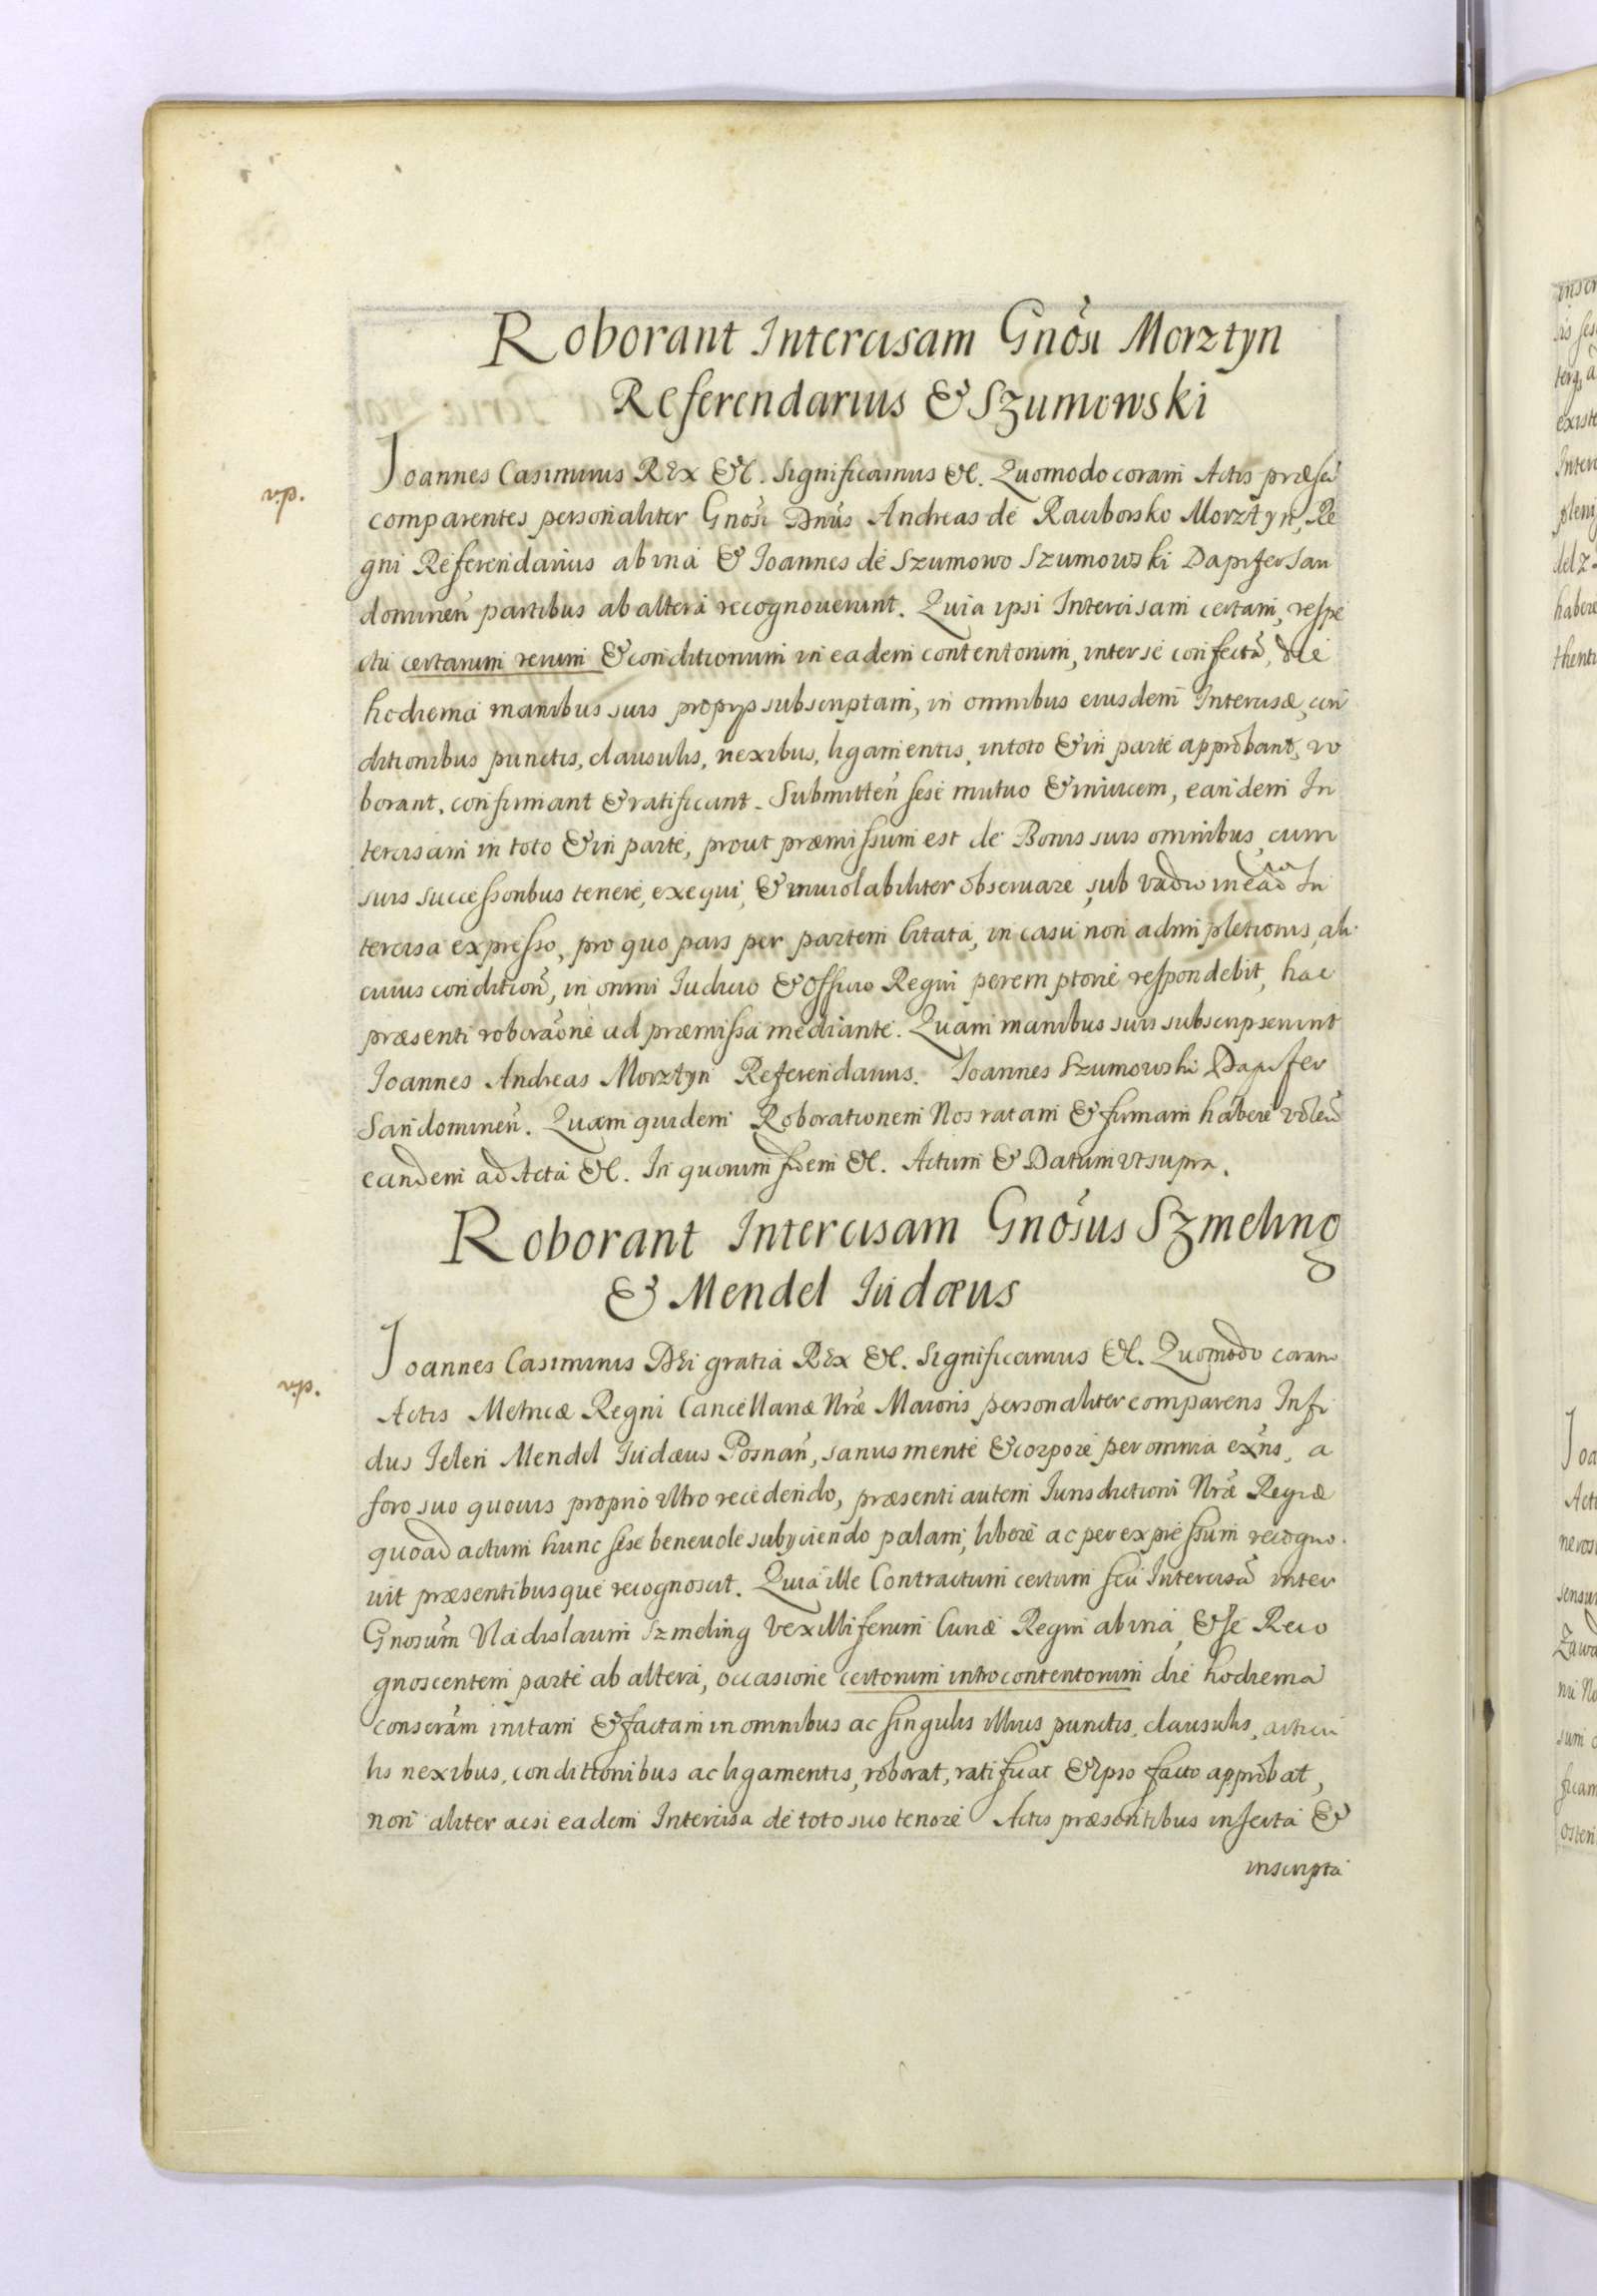 Roborant Intercisam Gnosi Morztyn
Referendarius & Szumowski
Joannes Casimirus REx &c. Significamus &c. Quomodo coram Actis præsen
v.p.
comparentes personaliter Gnosi Dnus Andreas de Raciborsko Morztyn, Re
gni Referendarius ab una & Joannes de Szumowo Szumowski Dapifer San
domiren partibus ab altera recognoverunt. Quia ipsi Intercisam certam, respe
ctu certarum rerum & conditionum in eadem contentorum, inter se confectã, die
hodierna manibus suis propijs subscriptam, in omnibus eiusdem Intercisæ, con
ditionibus punctis, clausulis, nexibus, ligamentis, in toto & in parte approbant, ro
borant, confirmant & ratificant. Submitten sese mutuo & invicem, eandem In
tercisam in toto & in parte, prout præmissum est de Bonis suis omnibus, cum
suis successoribus tenere, exequi, & inviolabiliter observare, sub vadio in ead In
tercisa expresso, pro quo pars per partem citata, in casu non adimpletionis, ali
cuius condition, in omni Judicio & Officio Regni peremptorie respondebit, hac
præsenti roboraone ad præmissa mediante. Quam manibus suis subscripserunt
Joannes Andreas Morztyn Referendarius. Joannes Szumowski Dapifer
Sandomiren. Quam quidem Roborationem Nos ratam & firmam habere volen
eandem ad Acta &c. In quorum fidem &c. Actum & Datum ut supra.
Roborant Intercisam Gnosus Szmeling
& Mendel Iudæus
Joannes Casimirus DEi gratia REx &c. Significamus &c. Quomodo coram
v.p.
Actis Metricæ Regni Cancellariæ Nræ Maioris personaliter comparens Infi
dus Jelen Mendel Iudæus Posnan, sanus mente & corpore per omnia exns, a
foro suo quovis proprio ultro recedendo, præsenti autem Jurisdictioni Nræ Regiæ
quoad actum hunc sese benevole subijciendo palam, libere ac per expressum recogno
vit præsentibusque recognoscit. Quia ille Contractum certum seu Intercisã inter
Gnosum Vladislaum Szmeling Vexilliferum Curiæ Regni ab una, & se Reco
gnoscentem parte ab altera, occasione certorum introcontentorum die hodierna
conscram initam & factam in omnibus ac singulis illius punctis, clausulis, articu
lis nexibus, conditionibus ac ligamentis, roborat, ratificat & ipso facto approbat,
non aliter acsi eadem Intercisa de toto suo tenore Actis præsentibus inserta &
inscripta